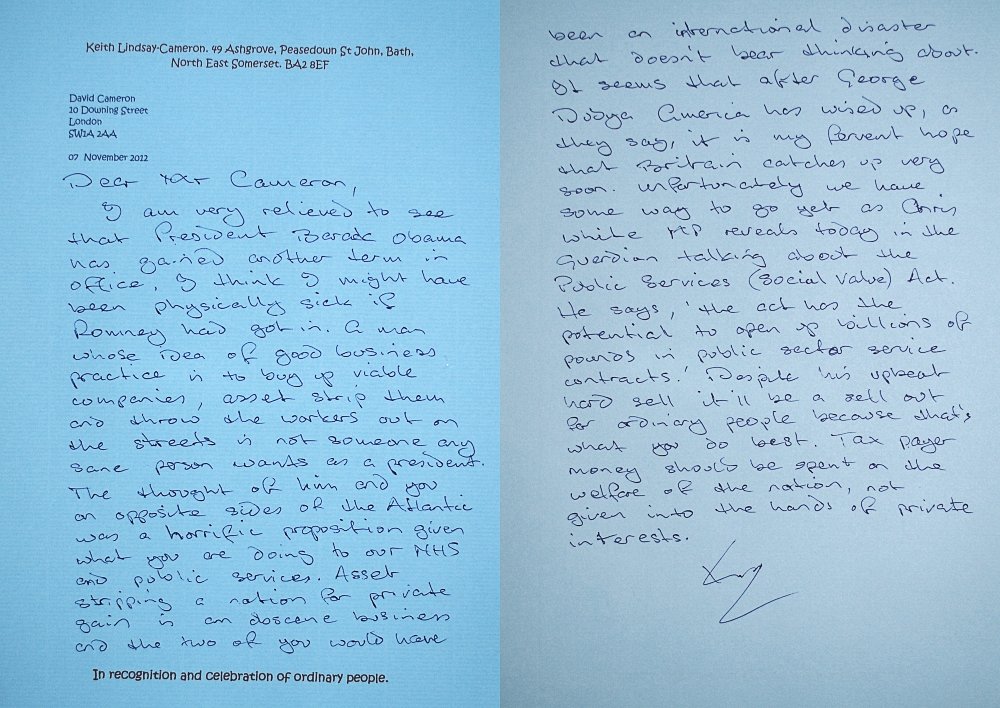 Keith Lindsay-Cameron. 49 Ashgrove, Peasedown St John, Bath,
North East Somerset. BA2 8EF
David Cameron
10 Downing Street
London
SW1A 2AA
07 November 2012
Dear Mr Cameron,
I am very relieved to see
that President Barack Obama
has gained another term in
office, I think I might have
been physically sick if
Romney had got in. A man
whose idea of good business
practice is to buy up viable
companies, asset strip them
and throw the workers out on
the streets is not someone any
sane person wants as a president.
The thought of him and you
on opposite sides of the Atlantic
was a horrific proposition given
what you are doing to our NHS
and public services. Asset
stripping a nation for private
gain is an obscene business
and the two of you would have
In recognition and celebration of ordinary people.
been an international disaster
that doesn't bear thinking about.
It seems that after George
Dubya America has wised up, as
they say, it is my fervent hope
that Britain catches up very
soon. Unfortunately we have
some way to go yet as Chris
White MP reveals today in the
Guardian talking about the
Public Services (Social Value) Act.
He says, 'the act has the
potential to open up billions of
pounds in public sector service
contracts.' Despite his upbeat
hard sell it'll be a sell out
for ordinary people because that's
what you do best. Tax payer
money should be spent on the
welfare of the nation, not
given into the hands of private
interests.